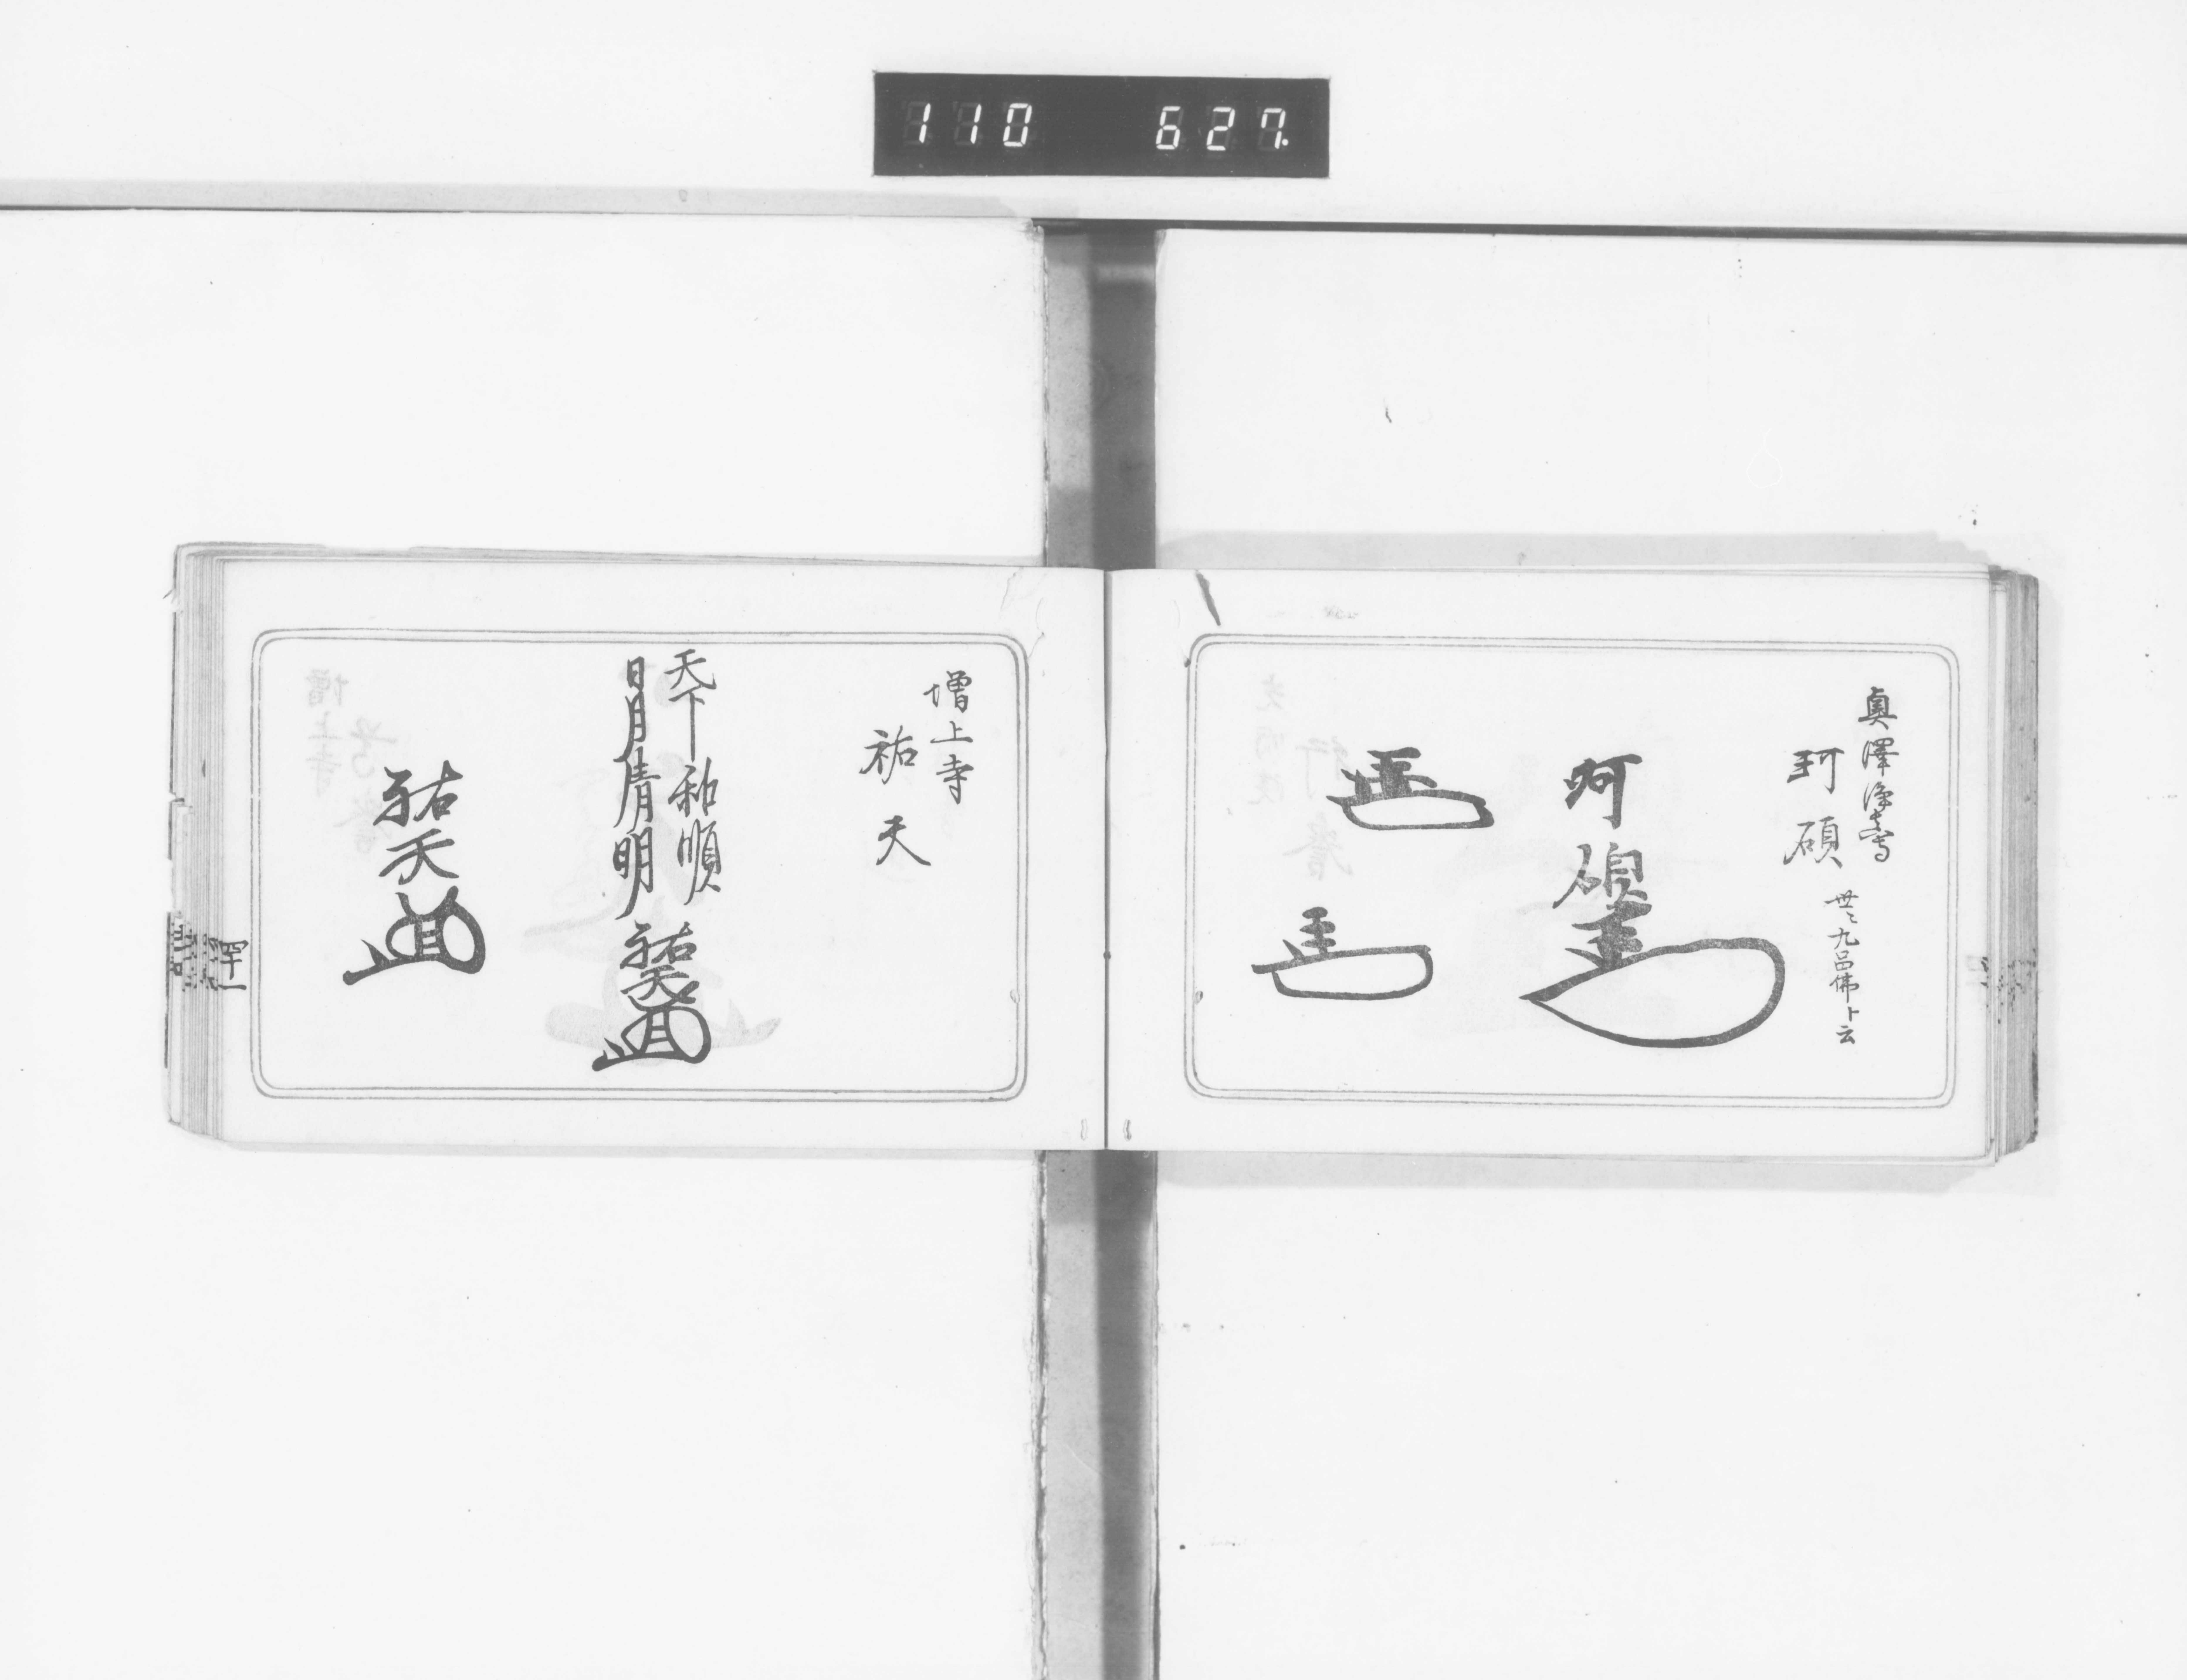 110 627
奥澤浄真寺
珂碩
世ニ九品佛ト云
珂碩
増上寺
祐天
天下和順
日月清明
祐天
祐天